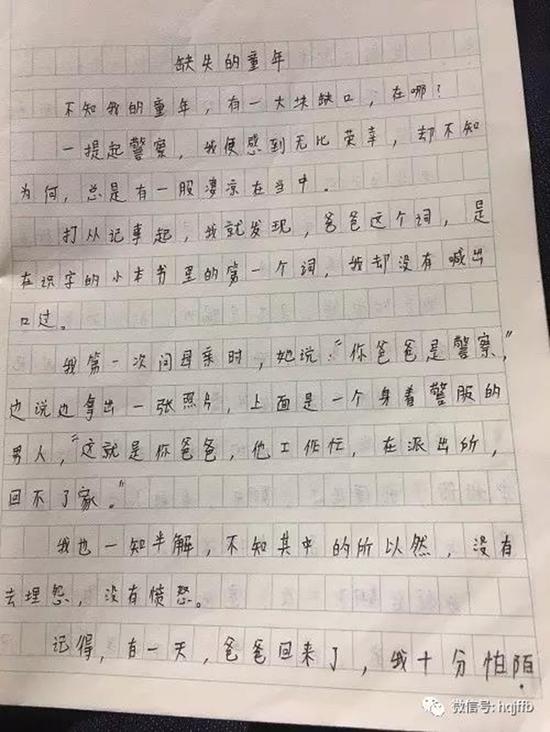 缺失的童年
不知我的童年，有一大块缺口，在哪？
一提起警察，我便感到无比荣幸，却不知
为何，总是有一股凄凉在当中。
打从记事起，我就发现，爸爸这个词，是
在识字的小本书里的第一个词，我却没有喊出
口过。
我第一次问母亲时，她说："你爸爸是警察，"
边说边拿出一张照片，上面是一个身着警服的
男人，"这就是你爸爸，他工作忙，在派出所，
回不了家。"
我也一知半解，不知其中的所以然，没有
去埋怨，没有愤怒。
记得，有一天，爸爸回来了，我十分怕陌
微信号: hqjffb